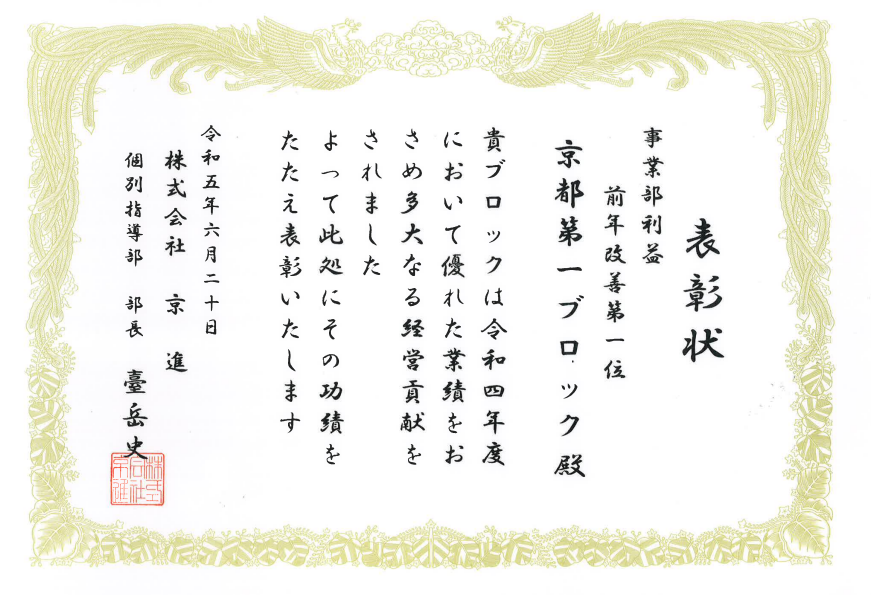 表彰状
事業部利益
前年改善第一位
京都第一ブロック殿
貴ブロックは令和四年度
において優れた業績をお
さめ多大なる経営貢献を
されました
よって此処にその功績を
たたえ表彰いたします
令和五年六月二十日
株式会社 京進
個別指導部 部長 臺岳史
株式会社京進